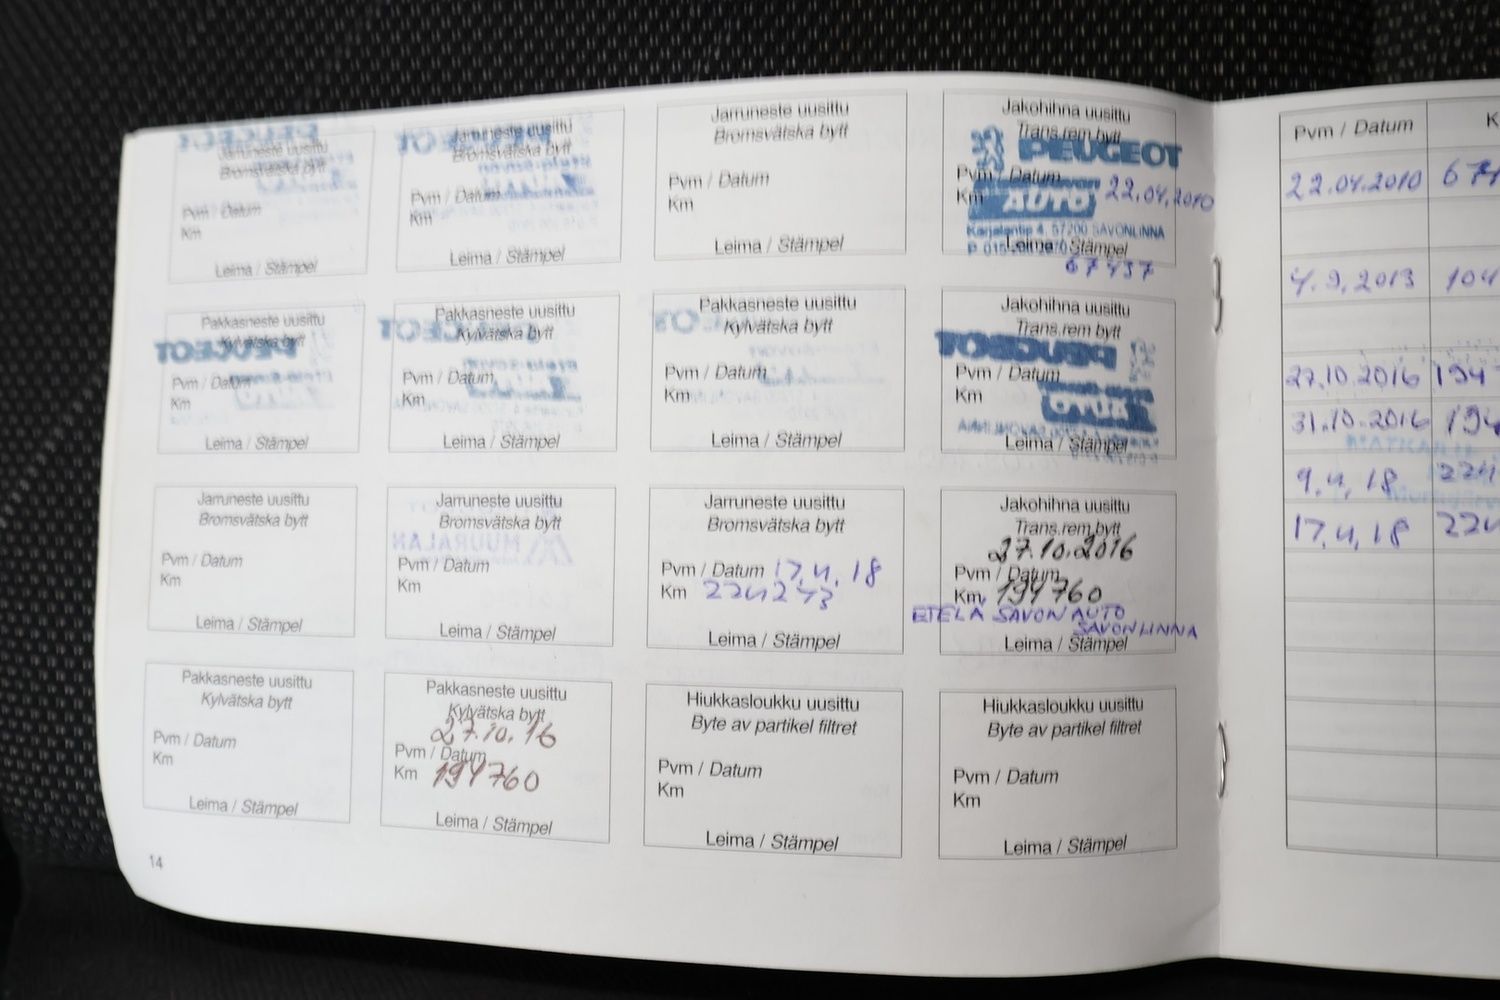 Jarruneste uusittu
Bromsvätska bytt
Pvm / Datum
Km
Leima / Stämpel
Jarruneste uusittu
Bromsvätska bytt
Pvm / Datum
Km
Leima / Stämpel
Jarruneste uusittu
Bromsvätska bytt
Pvm / Datum
Km
Leima / Stämpel
Jakohihna uusittu
Trans.rem bytt
PEUGEOT
Pvm / Datum 22.04.2010
Km
AUTO
Karjalantie 4, 57200 SAVONLINNA
Leima / Stämpel
67437
Pakkasneste uusittu
Kylvätska bytt
PEUGEOT
Pvm / Datum
Km
Leima / Stämpel
Pakkasneste uusittu
Kylvätska bytt
PEUGEOT
Pvm / Datum
Km
Leima / Stämpel
Pakkasneste uusittu
Kylvätska bytt
Pvm / Datum
Km
Leima / Stämpel
Jakohihna uusittu
Trans.rem bytt
PEUGEOT
Pvm / Datum
Km
AUTO
Leima / Stämpel
Jarruneste uusittu
Bromsvätska bytt
Pvm / Datum
Km
Leima / Stämpel
Jarruneste uusittu
Bromsvätska bytt
MUURALAN
Pvm / Datum
Km
Leima / Stämpel
Jarruneste uusittu
Bromsvätska bytt
Pvm / Datum 17.4.18
Km 224243
Leima / Stämpel
Jakohihna uusittu
Trans.rem bytt
27.10.2016
Pvm / Datum
Km 194760
ETELÄ SAVON AUTO
SAVONLINNA
Leima / Stämpel
Pakkasneste uusittu
Kylvätska bytt
Pvm / Datum
Km
Leima / Stämpel
Pakkasneste uusittu
Kylvätska bytt
27.10.16
Pvm / Datum
Km 194760
Leima / Stämpel
Hiukkasloukku uusittu
Byte av partikel filtret
Pvm / Datum
Km
Leima / Stämpel
Hiukkasloukku uusittu
Byte av partikel filtret
Pvm / Datum
Km
Leima / Stämpel
14
Pvm / Datum K
22.04.2010 674
4.9.2013 104
27.10.2016 194
31.10.2016 194
9.4.18 224
17.4.18 224